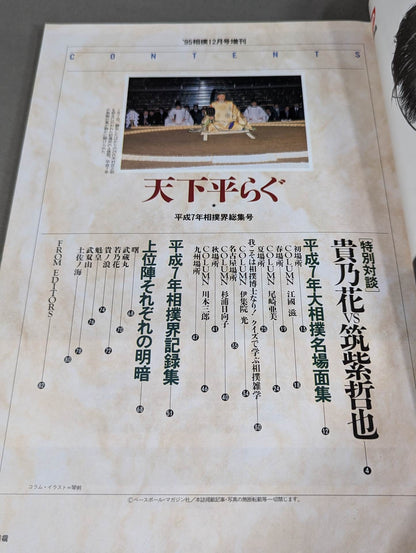 '95相撲12月号増刊
CONTENTS
天下平らぐ
平成7年相撲界総集号
[特別対談]
貴乃花VS筑紫哲也 4
平成7年大相撲名場面集 12
初場所 13
COLUMN 江國 滋
春場所 19
COLUMN 尾崎亜美 24
夏場所
我こそは相撲博士なり! クイズで学ぶ相撲雑学 30
COLUMN 伊集院 光 34
名古屋場所 35
COLUMN 杉浦日向子 40
秋場所 41
COLUMN 川本三郎 46
九州場所 47
平成7年相撲界記録集 51
上位陣それぞれの明暗 68
曙
武蔵丸
若乃花 70
貴ノ浪
魁皇 74
武双山
土佐ノ海
FROM EDITORS 82
コラム・イラスト=関剣
©ベースボール・マガジン社/本誌掲載記事・写真の無断転載等一切禁じます。